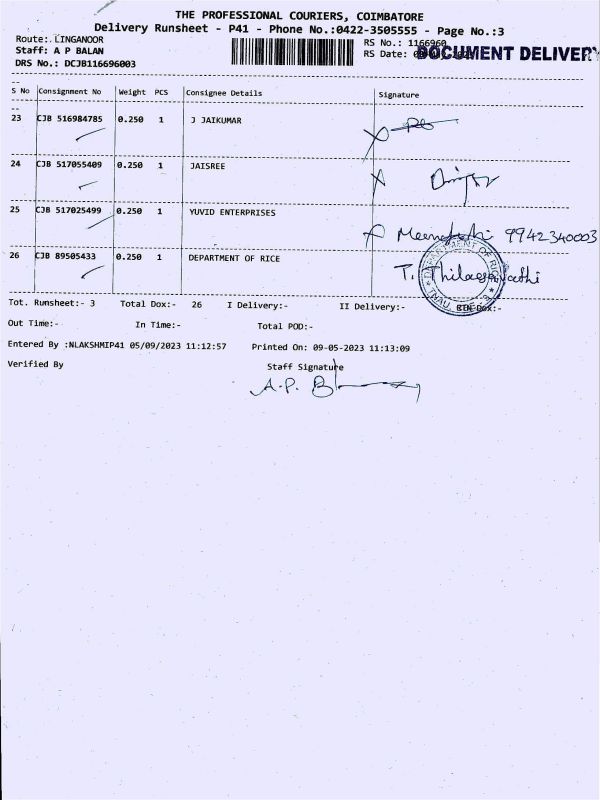 THE PROFESSIONAL COURIERS, COIMBATORE
Delivery Runsheet - P41 - Phone No.:0422-3505555 - Page No.:3
Route:. LINGANOOR RS No.: 1166960
Staff: A P BALAN RS Date: DOCUMENT DELIVERY
DRS No.: DCJB116696003
S No Consignment No Weight PCS Consignee Details Signature
23 CJB 516984785 0.250 1 J JAIKUMAR
24 CJB 517055409 0.250 1 JAISREE
25 CJB 517025499 0.250 1 YUVID ENTERPRISES
Meenakshi 9942340003
26 CJB 89505433 0.250 1 DEPARTMENT OF RICE
T. Thilagavathi
DEPARTMENT OF RICE
TNAU, CBE-3
Tot. Runsheet:- 3 Total Dox:- 26 I Delivery:- II Delivery:-
Out Time:- In Time:- Total POD:-
Entered By :NLAKSHMIP41 05/09/2023 11:12:57 Printed On: 09-05-2023 11:13:09
Verified By Staff Signature
A.P. B